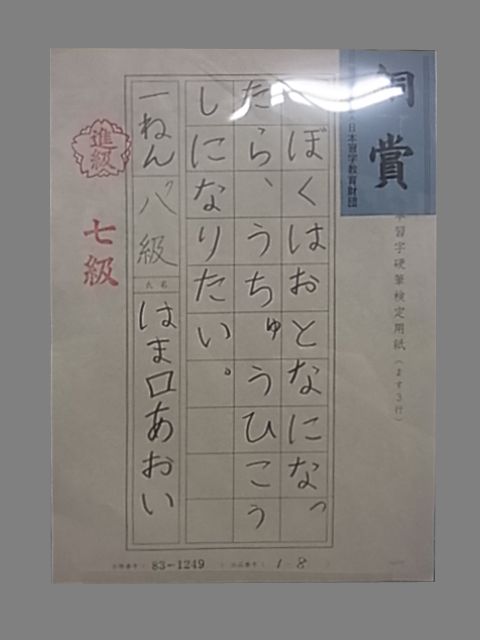 銅賞
日本習字教育財団
習字硬筆検定用紙(ます3行)
ぼくはおとなになっ
たら、うちゅうひこう
しになりたい。
一ねん 八級 氏名 はま口あおい
進級
七級
83-1249
1-8